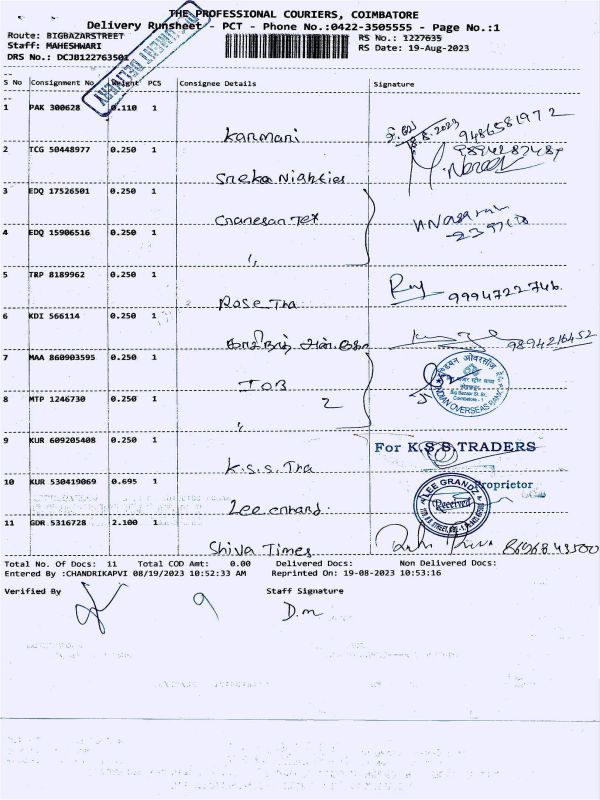 THE PROFESSIONAL COURIERS, COIMBATORE
Delivery Runsheet - PCT - Phone No.:0422-3505555 - Page No.:1
Route: BIGBAZARSTREET
RS No.: 1227635
Staff: MAHESHWARI
RS Date: 19-Aug-2023
DRS No.: DCJB122763501
S No Consignment No. Weight PCS Consignee Details Signature
1 PAK 300628 0.110 1
Kanmani
18.8.2023 9486581972
2 TCG 50448977 0.250 1
Sneka Nighties
3 EDQ 17526501 0.250 1
Ganesan Tex
4 EDQ 15906516 0.250 1
"
5 TRP 8189962 0.250 1
Rose Tra
9994722746.
6 KDI 566114 0.250 1
9894216452
7 MAA 860903595 0.250 1
IOB
2
8 MTP 1246730 0.250 1
"
INDIAN OVERSEAS BANK
Coimbatore - 1
9 KUR 609205408 0.250 1
For K.S.S.TRADERS
K.S.S. Tra
Proprietor
10 KUR 530419069 0.695 1
LEE GRANDZ
Received
11 GDR 5316728 2.100 1
Shiva Times
Total No. Of Docs: 11 Total COD Amt: 0.00 Delivered Docs: Non Delivered Docs:
Entered By :CHANDRIKAPVI 08/19/2023 10:52:33 AM Reprinted On: 19-08-2023 10:53:16
Verified By Staff Signature
D.m